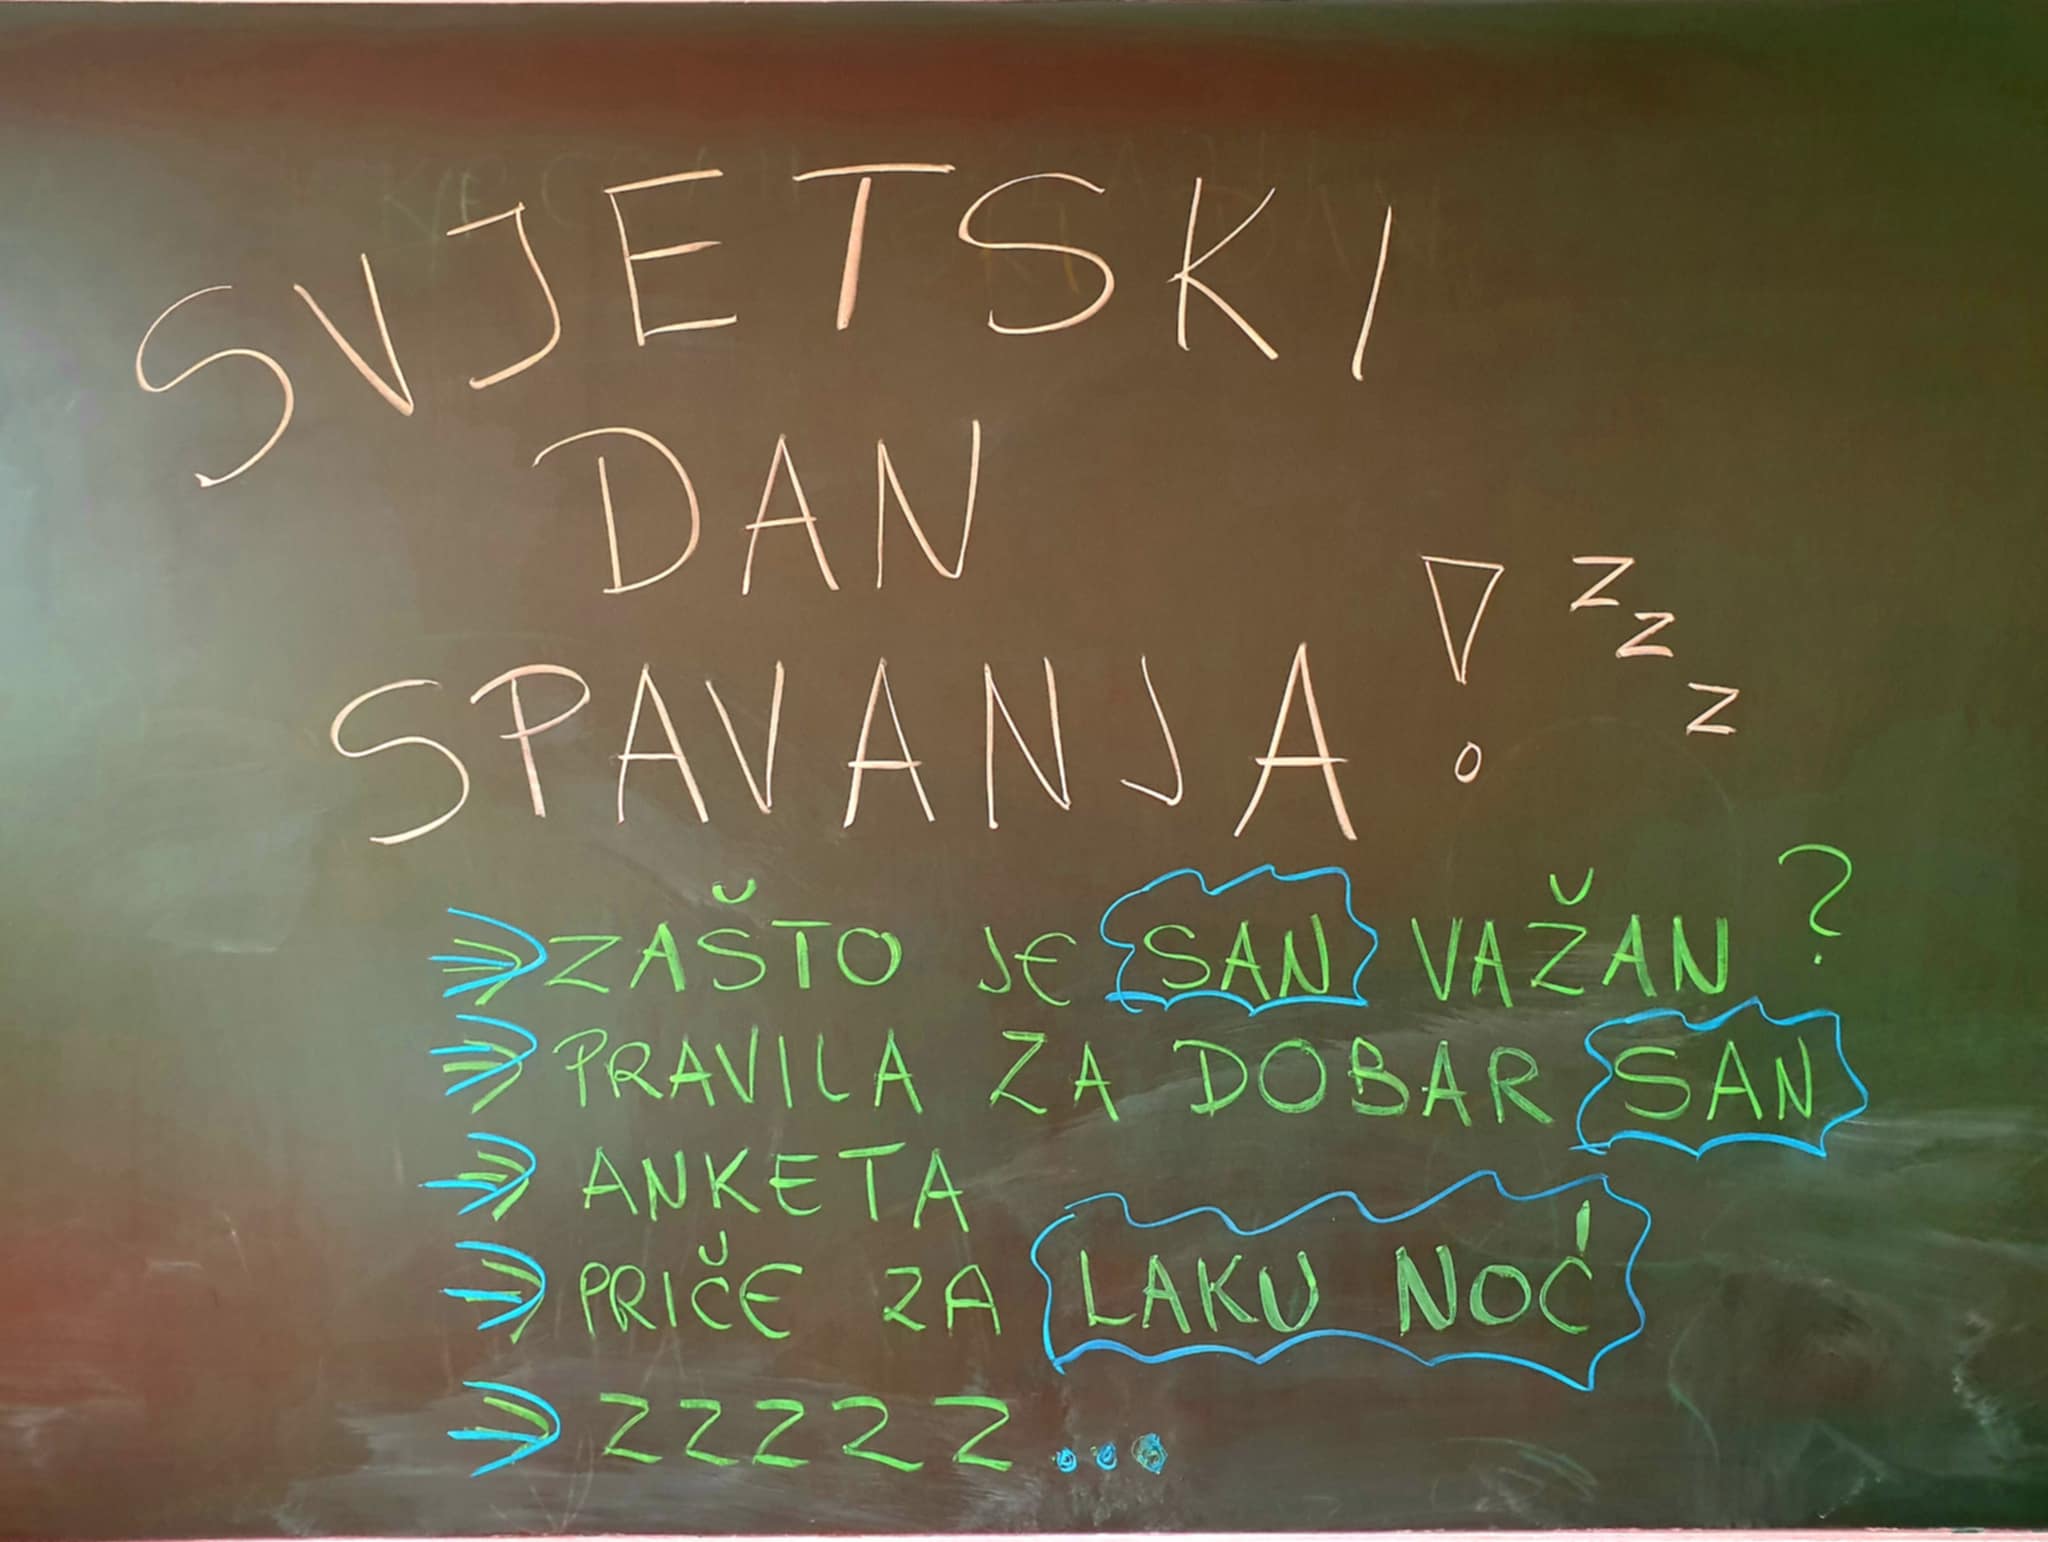 SVJETSKI
DAN
SPAVANJA! z z z
ZAŠTO JE SAN VAŽAN?
PRAVILA ZA DOBAR SAN
ANKETA
PRIČE ZA LAKU NOĆ
ZZZZZ...